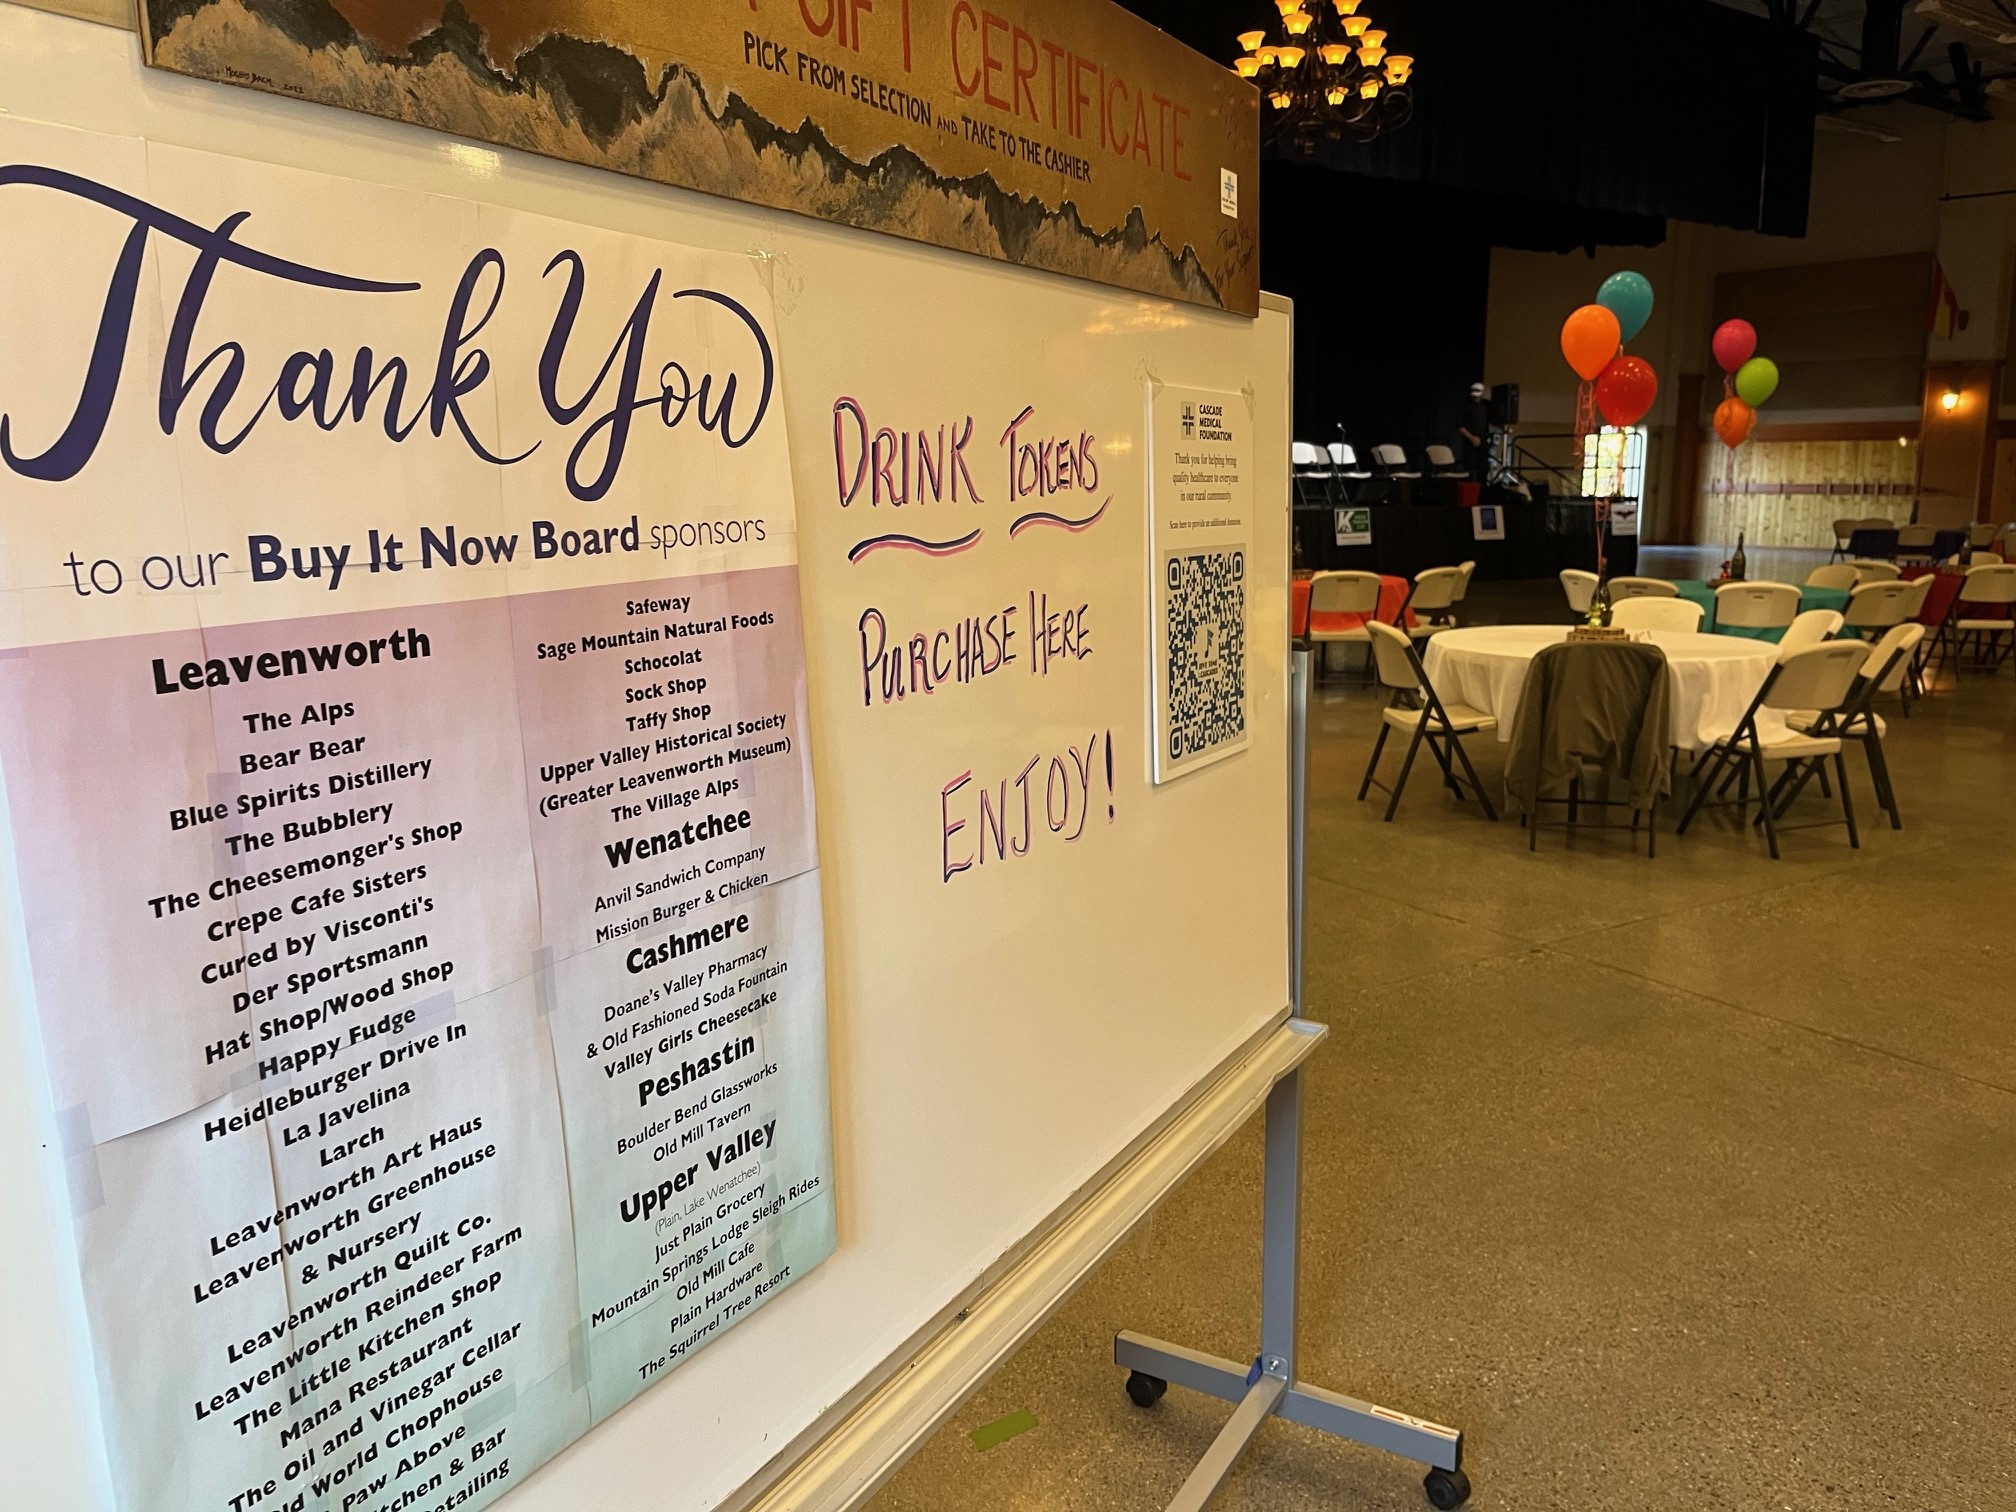 GIFT CERTIFICATE
PICK FROM SELECTION AND TAKE TO THE CASHIER
2022
Thank You
to our Buy It Now Board sponsors
Leavenworth
The Alps
Bear Bear
Blue Spirits Distillery
The Bubblery
The Cheesemonger's Shop
Crepe Cafe Sisters
Cured by Visconti's
Der Sportsmann
Hat Shop/Wood Shop
Happy Fudge
Heidleburger Drive In
La Javelina
Larch
Leavenworth Art Haus
Leavenworth Greenhouse
& Nursery
Leavenworth Quilt Co.
Leavenworth Reindeer Farm
The Little Kitchen Shop
Mana Restaurant
The Oil and Vinegar Cellar
World Chophouse
Paw Above
& Bar
Safeway
Sage Mountain Natural Foods
Schocolat
Sock Shop
Taffy Shop
Upper Valley Historical Society
(Greater Leavenworth Museum)
The Village Alps
Wenatchee
Anvil Sandwich Company
Mission Burger & Chicken
Cashmere
Doane's Valley Pharmacy
& Old Fashioned Soda Fountain
Valley Girls Cheesecake
Peshastin
Boulder Bend Glassworks
Old Mill Tavern
Upper Valley
(Plain, Lake Wenatchee)
Just Plain Grocery
Mountain Springs Lodge Sleigh Rides
Old Mill Cafe
Plain Hardware
The Squirrel Tree Resort
DRINK TOKENS
PURCHASE HERE
ENJOY!
CASCADE
MEDICAL
FOUNDATION
Thank you for helping bring
quality healthcare to everyone
in our rural community.
Scan here to provide an additional donation